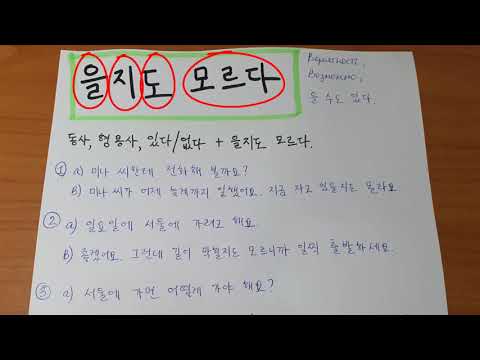 을지도 모르다
Вероятность,
Возможно,
을 수도 있다.
동사, 형용사, 있다/없다 + 을지도 모르다.
① a) 미나 씨한테 전화해 볼까요?
b) 미나 씨가 어제 늦게까지 일했어요. 지금 자고 있을지도 몰라요
② a) 일요일에 서울에 가려고 해요.
b) 좋겠어요. 그런데 길이 막힐지도 모르니까 일찍 출발하세요.
③ a) 서울에 가면 어떻게 가야 해요?